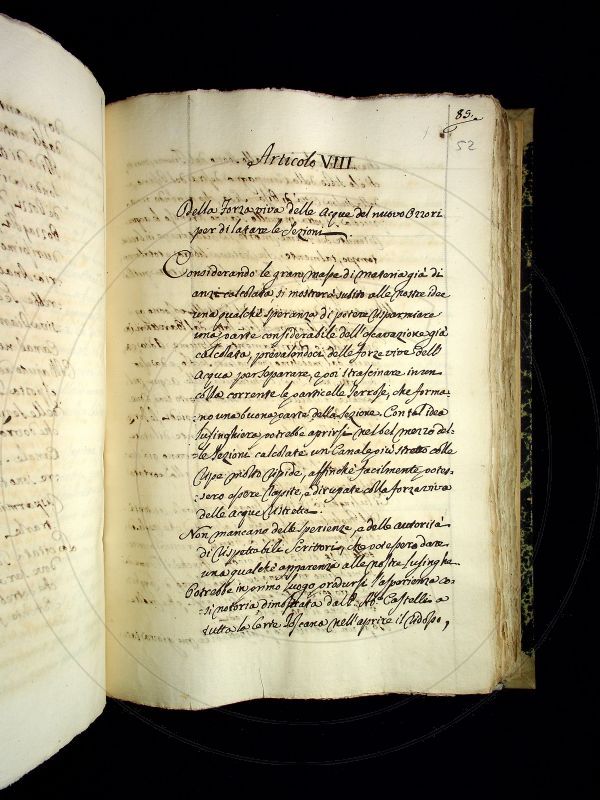 85.
52
Articolo VIII.
Della Forza viva delle Acque del nuovo Ozzeri
per dilatare le Sezioni.
Considerando le gran masse di materia già di
anzi calcolata si mostrerà subito alle nostre idee
una qualche speranza di potere risparmiare
una parte considerabile dell'escavazione già
calcolata, prevalendoci delle forze vive dell'
Acqua per separare, e poi trascinare in
colla corrente le particelle Terrose, che forma-
no una buona parte della Sezione. Con tal idea
lusinghiera potrebbe aprirsi nel bel mezzo del-
le Sezioni calcolate un Canale più stretto colle
ripe molto ripide, affinchè facilmente potes-
sero essere e dirupate colla forza viva
delle Acque ristrette.
Non mancano delle sperienze, e delle autorità
di rispettabili Scrittori, che potessero dare
una qualche apparenza alle nostre lusinghe.
Potrebbe in primo luogo prodursi l'esperienza co-
-sì notoria dimostrata dal P. Ab. Castelli a
tutta la Corte Toscana nell'aprire il